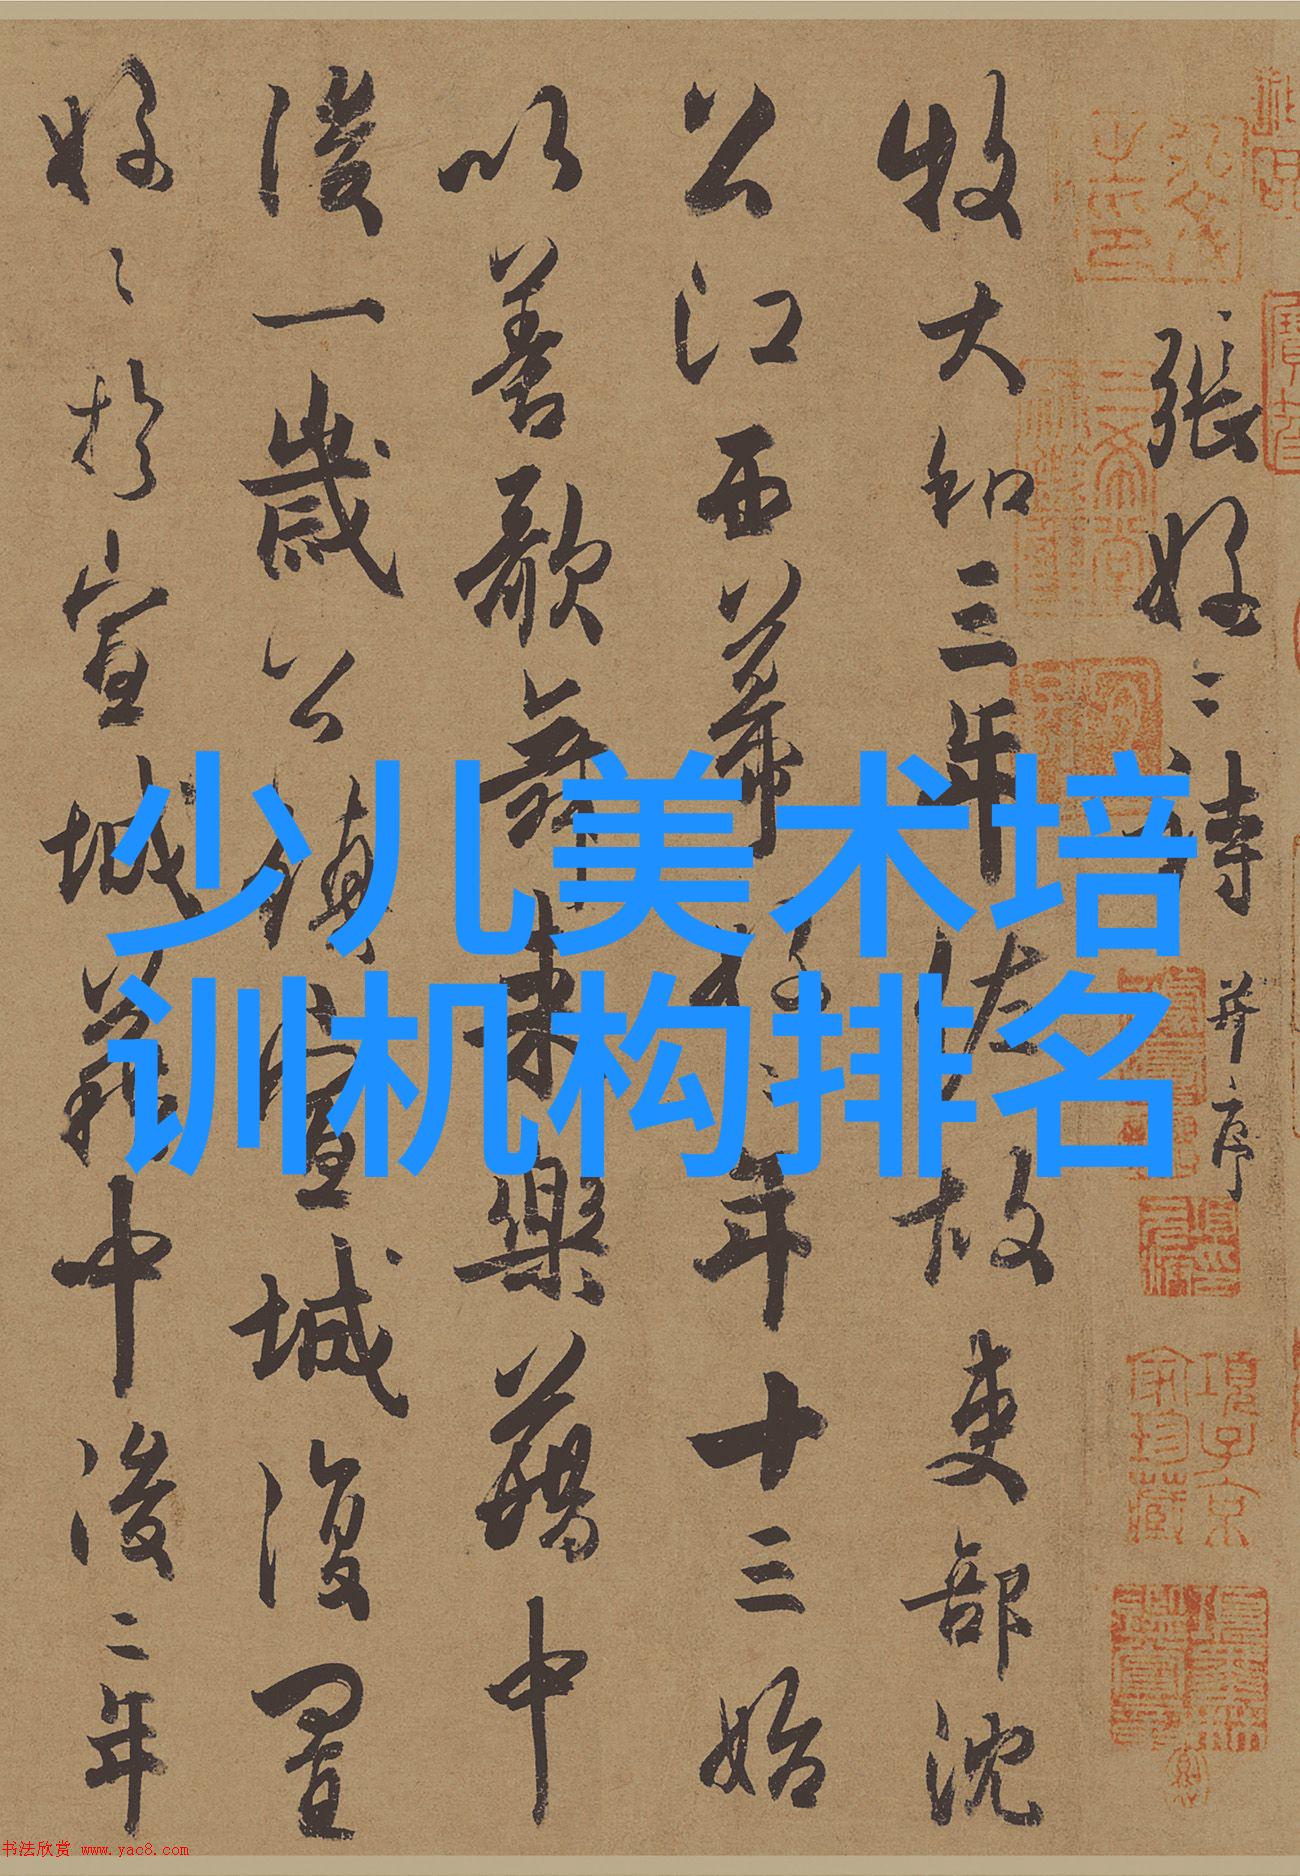 張好〻詩 并序
牧大和三年佐故吏部沈
公江西幕好〻年十三始
以善歌舞来樂籍中
後一歲公鎮宣城復置
好〻於宣城籍中後二年
少儿美术培
训机构排名
三希堂
項子京
家珍藏
书法欣赏 www.yac8.com